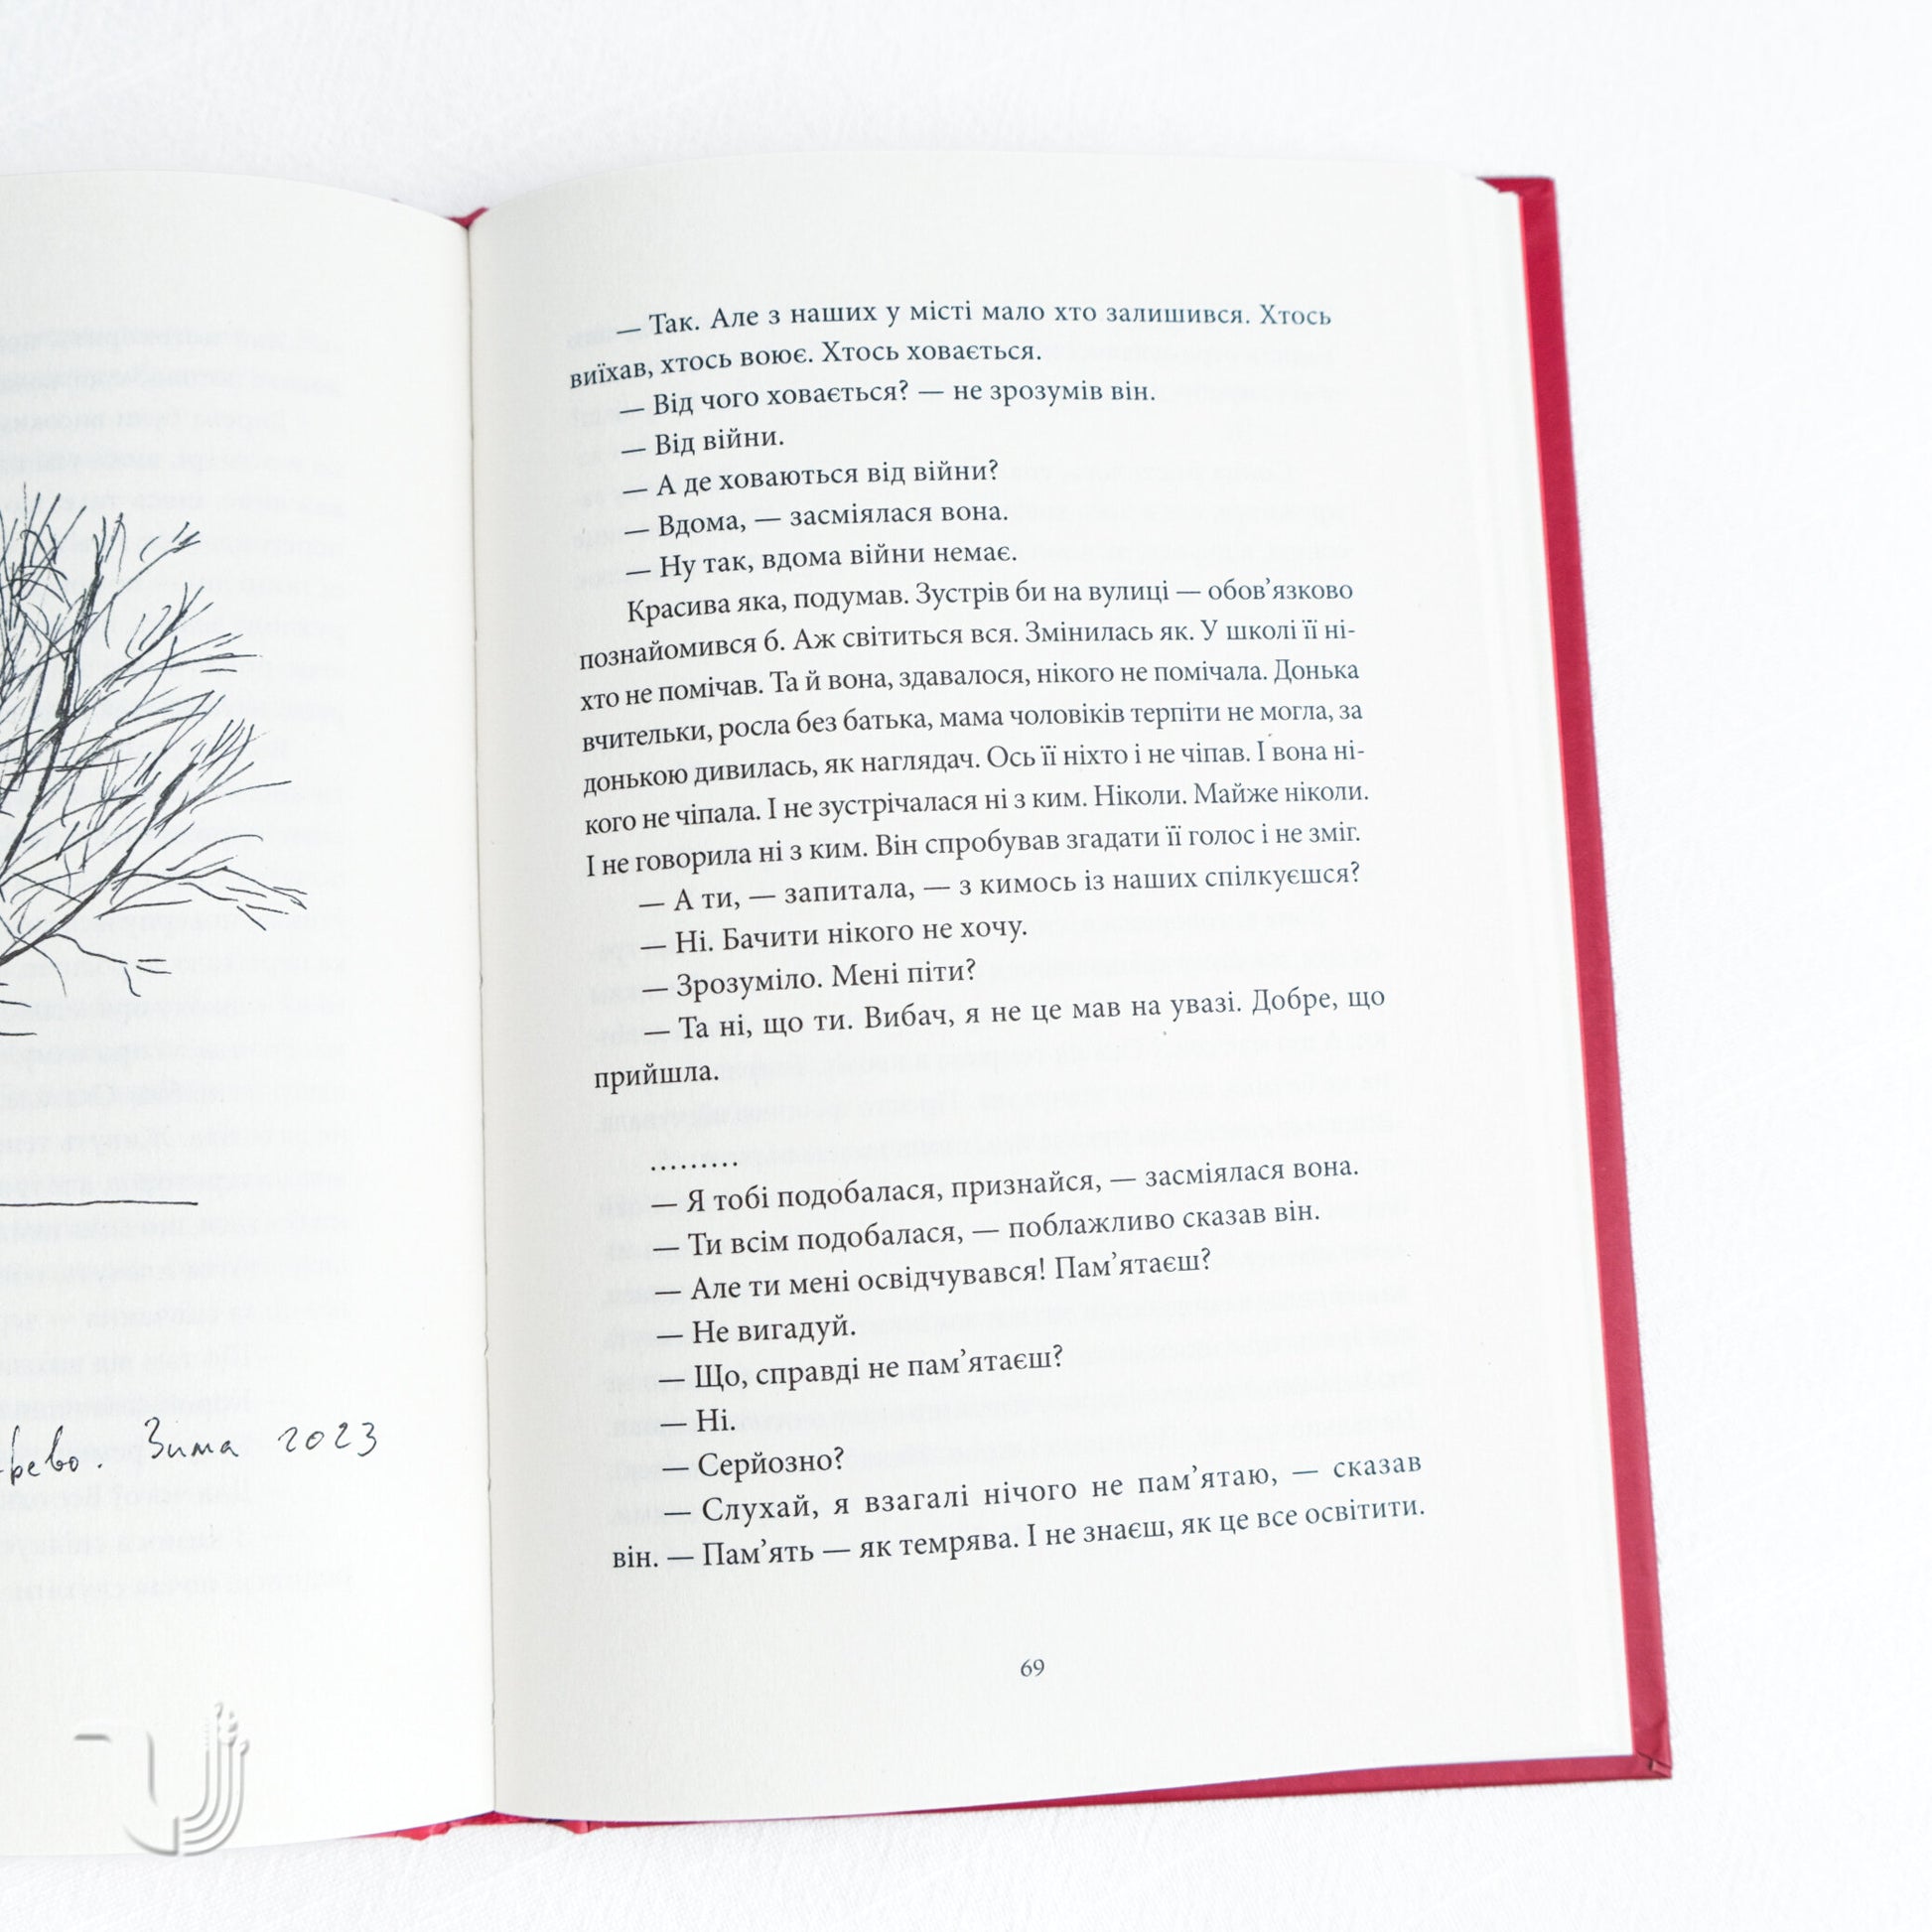 Зима 2023
— Так. Але з наших у місті мало хто залишився. Хтось
виїхав, хтось воює. Хтось ховається.
— Від чого ховається? — не зрозумів він.
— Від війни.
— А де ховаються від війни?
— Вдома, — засміялася вона.
— Ну так, вдома війни немає.
Красива яка, подумав. Зустрів би на вулиці — обов’язково
познайомився б. Аж світиться вся. Змінилась як. У школі її ні-
хто не помічав. Та й вона, здавалося, нікого не помічала. Донька
вчительки, росла без батька, мама чоловіків терпіти не могла, за
донькою дивилась, як наглядач. Ось її ніхто і не чіпав. І вона ні-
кого не чіпала. І не зустрічалася ні з ким. Ніколи. Майже ніколи.
І не говорила ні з ким. Він спробував згадати її голос і не зміг.
— А ти, — запитала, — з кимось із наших спілкуєшся?
— Ні. Бачити нікого не хочу.
— Зрозуміло. Мені піти?
— Та ні, що ти. Вибач, я не це мав на увазі. Добре, що
прийшла.
.........
— Я тобі подобалася, признайся, — засміялася вона.
— Ти всім подобалася, — поблажливо сказав він.
— Але ти мені освідчувався! Пам’ятаєш?
— Не вигадуй.
— Що, справді не пам’ятаєш?
— Ні.
— Серйозно?
— Слухай, я взагалі нічого не пам’ятаю, — сказав
він. — Пам’ять — як темрява. І не знаєш, як це все освітити.
69